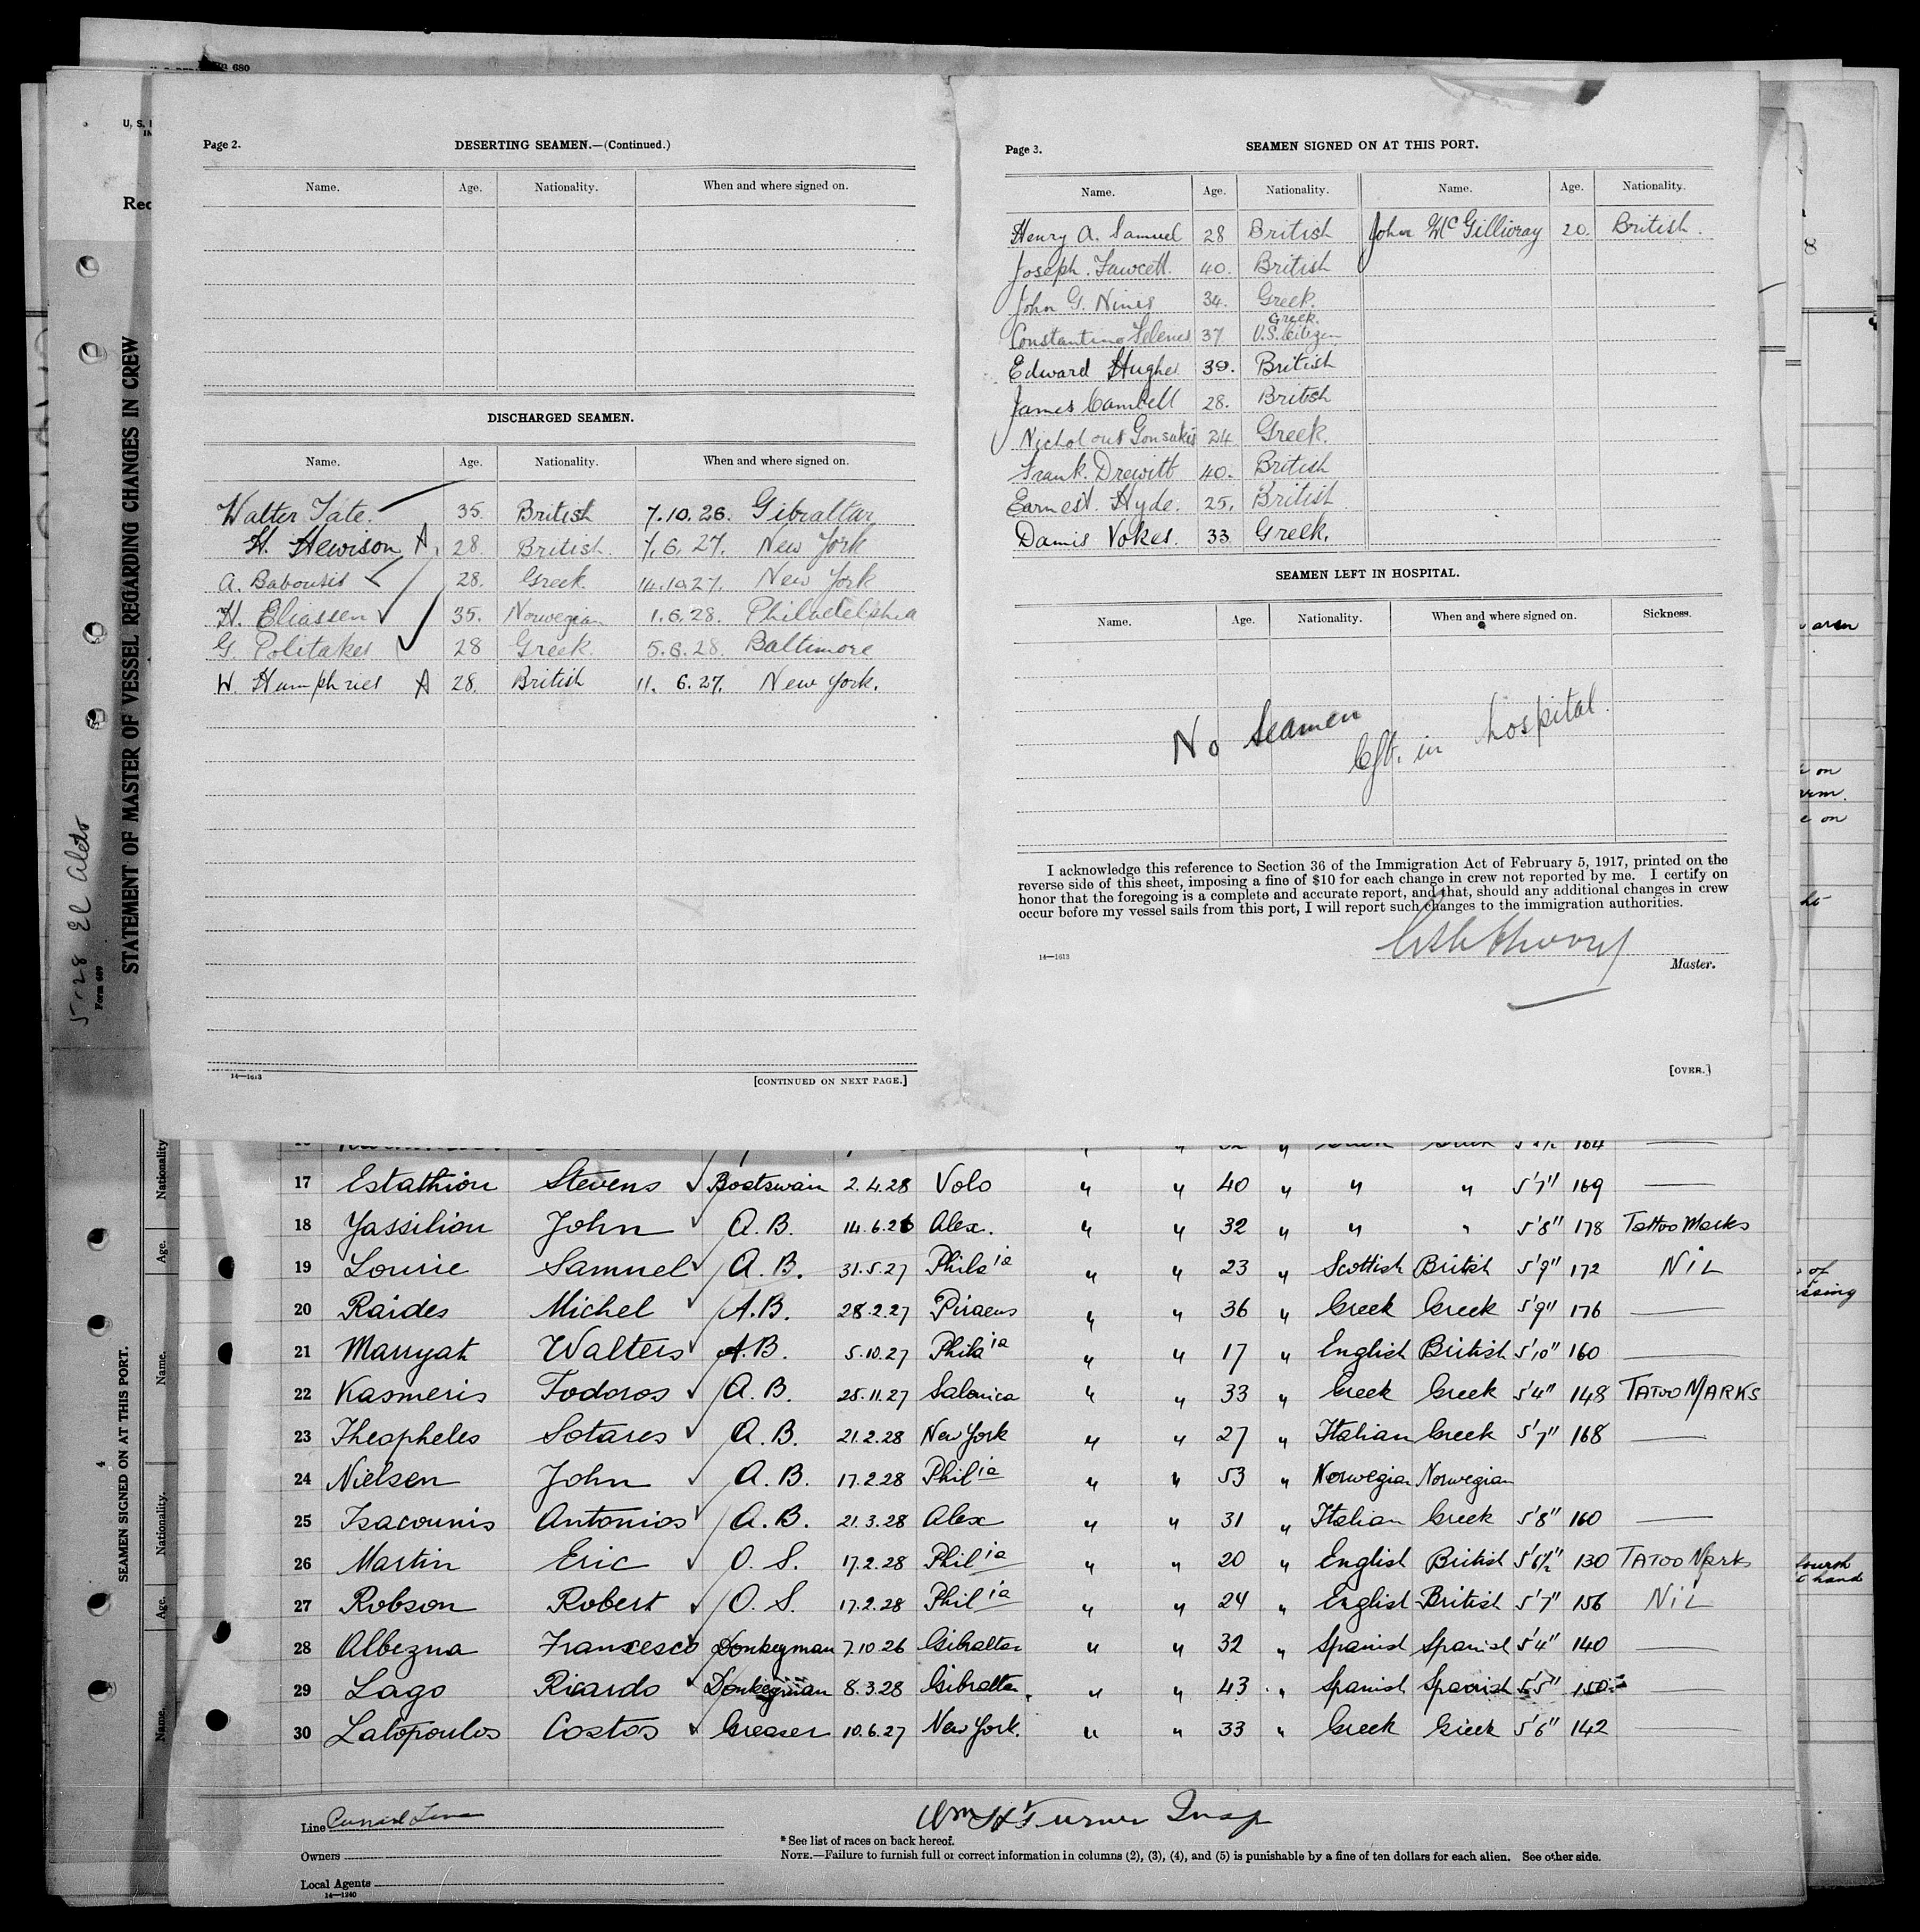 Form 680
U. S.
Rec
STATEMENT OF MASTER OF VESSEL REGARDING CHANGES IN CREW
Form 689
5-28 El Aleto
Page 2.
DESERTING SEAMEN.—(Continued.)
Name. Age. Nationality. When and where signed on.
DISCHARGED SEAMEN.
Name. Age. Nationality. When and where signed on.
Walter Tate. 35. British 7.10.26. Gibraltar
H. Hewison A 28. British. 7.6.27. New York
A. Baboutis 28. Greek. 14.10.27. New York
H. Eliassen 35. Norwegian 1.6.28. Philadelphia
G. Politakes 28 Greek. 5.6.28. Baltimore
W. Humphries A 28. British 11.6.27. New York.
14—1613
[CONTINUED ON NEXT PAGE.]
Page 3.
SEAMEN SIGNED ON AT THIS PORT.
Name. Age. Nationality. Name. Age. Nationality.
Henry A. Samuel 28 British John McGillivray 20. British.
Joseph. Fawcett. 40. British
John G. Nines 34. Greek.
Greek.
Constantino Selenes 37 U.S. Citizen
Edward Hughes 39. British
James Cambell 28. British
Nicholous Gonsakis 24 Greek.
Frank. Drewitt 40. British
Earnest. Hyde. 25. British
Damis Vokes. 33 Greek.
SEAMEN LEFT IN HOSPITAL.
Name. Age. Nationality. When and where signed on. Sickness.
No Seamen left. in hospital.
I acknowledge this reference to Section 36 of the Immigration Act of February 5, 1917, printed on the
reverse side of this sheet, imposing a fine of $10 for each change in crew not reported by me. I certify on
honor that the foregoing is a complete and accurate report, and that, should any additional changes in crew
occur before my vessel sails from this port, I will report such changes to the immigration authorities.
14—1613
Master.
[OVER.]
17 Estathion Stevens Boatswain 2.4.28 Volo " " 40 " " " 5'7" 169 —
18 Yassilion John A.B. 14.6.26 Alex. " " 32 " " " 5'8" 178 Tattoo Marks
19 Lourie Samuel A.B. 31.5.27 Phila ia " " 23 " Scottish British 5'9" 172 NiL
20 Raides Michel A.B. 28.2.27 Piraeus " " 36 " Greek Greek 5'9" 176 —
21 Marryat Walters A.B. 5.10.27 Phila ia " " 17 " English British 5'10" 160 —
22 Kasmeris Todoros A.B. 25.11.27 Salonica " " 33 " Greek Greek 5'4" 148 TATOO MARKS
23 Theopheles Sotares A.B. 21.2.28 New York " " 27 " Italian Greek 5'7" 168 —
24 Nielsen John A.B. 17.2.28 Phil ia " " 53 " Norwegian Norwegian
25 Isacounis Antonios A.B. 21.3.28 Alex " " 31 " Italian Greek 5'8" 160 —
26 Martin Eric O.S. 17.2.28 Phil ia " " 20 " English British 5'6½" 130 TATOO Marks
27 Robson Robert O.S. 17.2.28 Phil ia " " 24 " English British 5'7" 156 NiL
28 Albezna Francesco Donkeyman 7.10.26 Gibraltar " " 32 " Spanish Spanish 5'4" 140 —
29 Lago Ricardo Donkeyman 8.3.28 Gibraltar. " " 43 " Spanish Spanish 5'5" 150 —
30 Latopoulos Costos Greaser 10.6.27 New York. " " 33 " Greek Greek 5'6" 142 —
SEAMEN SIGNED ON AT THIS PORT.
4
Name. Age. Nationality. Name. Age. Nationality
Line Cunard Line
Wm H Turner Insp
* See list of races on back hereof.
Owners
NOTE.—Failure to furnish full or correct information in columns (2), (3), (4), and (5) is punishable by a fine of ten dollars for each alien. See other side.
Local Agents
14—1240